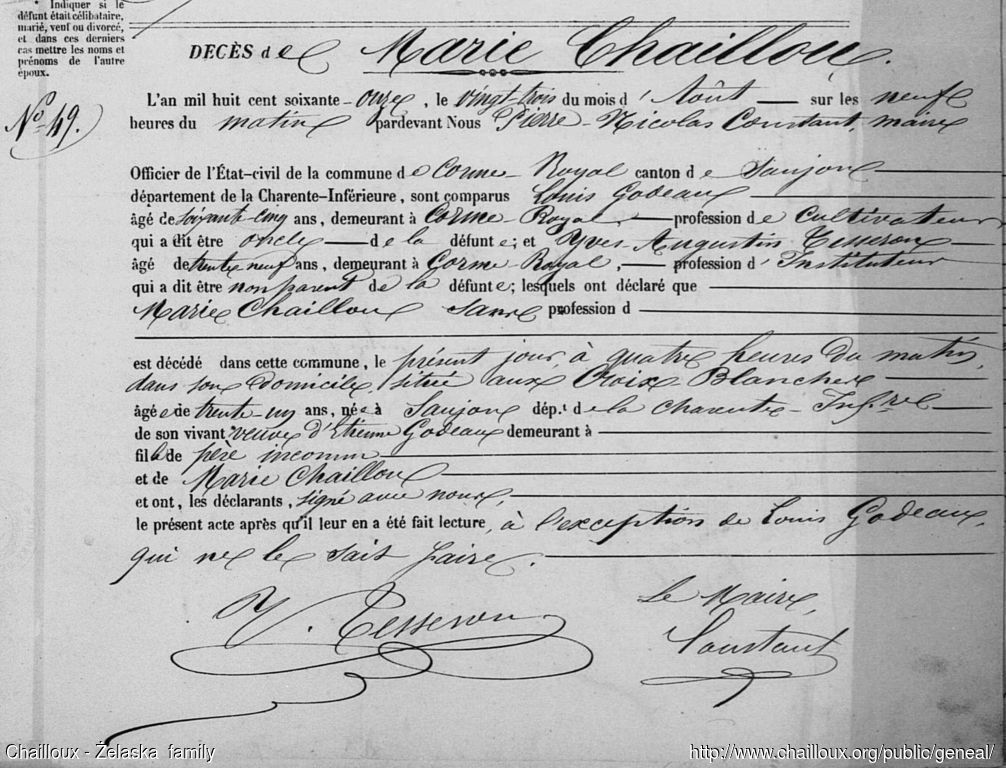 * Indiquer si le
défunt était célibataire,
marié, veuf ou divorcé,
et dans ces derniers
cas mettre les noms et
prénoms de l'autre
époux.
DÉCÈS de Marie Chaillou.
No 49.
L'an mil huit cent soixante-onze, le vingt-trois du mois d'Août sur les neuf
heures du matin pardevant Nous Pierre-Nicolas Constant, maire
Officier de l'État-civil de la commune de Corme-Royal canton de Saujon
département de la Charente-Inférieure, sont comparus Louis Godeaux
âgé de soixante-cinq ans, demeurant à Corme-Royal, profession de Cultivateur
qui a dit être oncle de la défunte; et Yves Augustin Tesseron
âgé de trente neuf ans, demeurant à Corme-Royal, profession d'Instituteur
qui a dit être non parent de la défunte; lesquels ont déclaré que
Marie Chaillou sans profession d
est décédé dans cette commune, le présent jour, à quatre heures du matin,
dans son domicile, située aux Croix Blanches
âgée de trente-un ans, née à Saujon dép.t de la Charente-Inf.re
de son vivant veuve d'Etienne Godeaux demeurant à
fille de père inconnu
et de Marie Chaillou
et ont, les déclarants, signé avec nous,
le présent acte après qu'il leur en a été fait lecture, à l'exception de Louis Godeaux,
qui ne le sait faire.
Y. Tesseron
Le Maire,
Constant
Chailloux - Żelaska family
http://www.chailloux.org/public/geneal/